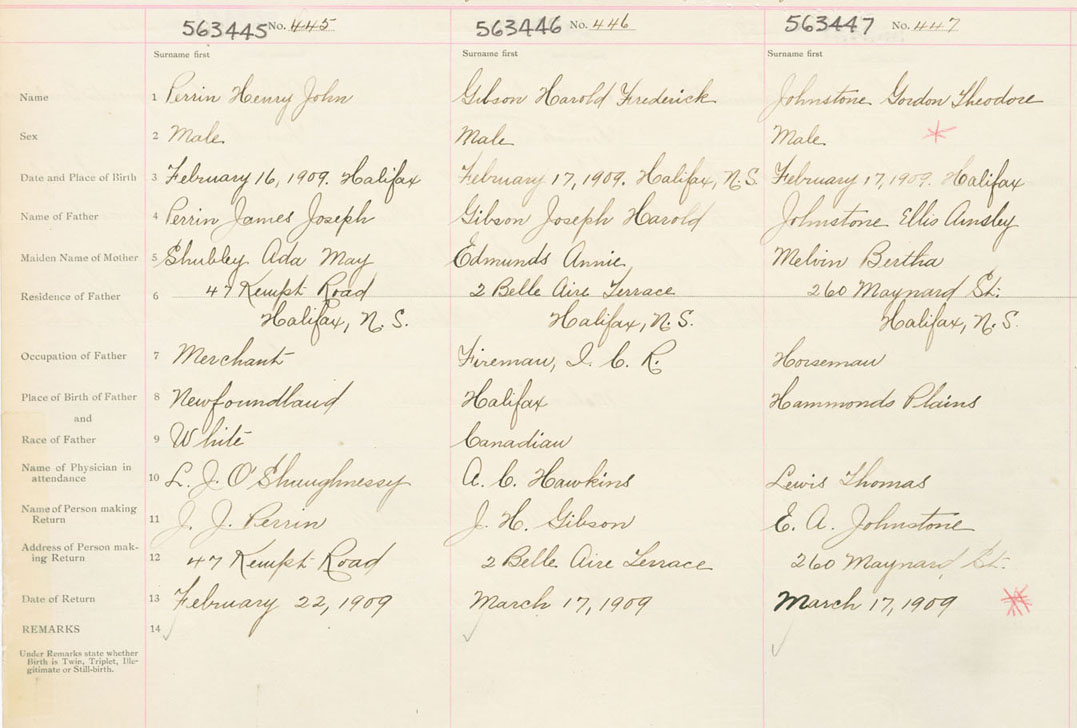 563445 No. 445 563446 No. 446 563447 No. 447
Surname first Surname first Surname first
Name 1 Perrin Henry John Gibson Harold Frederick Johnstone Gordon Theodore
Sex 2 Male Male Male
Date and Place of Birth 3 February 16, 1909. Halifax February 17, 1909. Halifax, N.S. February 17, 1909. Halifax
Name of Father 4 Perrin James Joseph Gibson Joseph Harold Johnstone Ellis Ainsley
Maiden Name of Mother 5 Shubley Ada May Edmunds Annie Melvin Bertha
Residence of Father 6 47 Kempt Road 2 Belle Aire Terrace 260 Maynard St.
Halifax, N.S. Halifax, N.S. Halifax, N.S.
Occupation of Father 7 Merchant Fireman, I. C. R. Horseman
Place of Birth of Father 8 Newfoundland Halifax Hammonds Plains
and
Race of Father 9 White Canadian
Name of Physician in
attendance 10 L. J. O'Shaughnessy A. C. Hawkins Lewis Thomas
Name of Person making
Return 11 J. J. Perrin J. H. Gibson E. A. Johnstone
Address of Person mak-
ing Return 12 47 Kempt Road 2 Belle Aire Terrace 260 Maynard St.
Date of Return 13 February 22, 1909 March 17, 1909 March 17, 1909
REMARKS 14
Under Remarks state whether
Birth is Twin, Triplet, Ille-
gitimate or Still-birth.